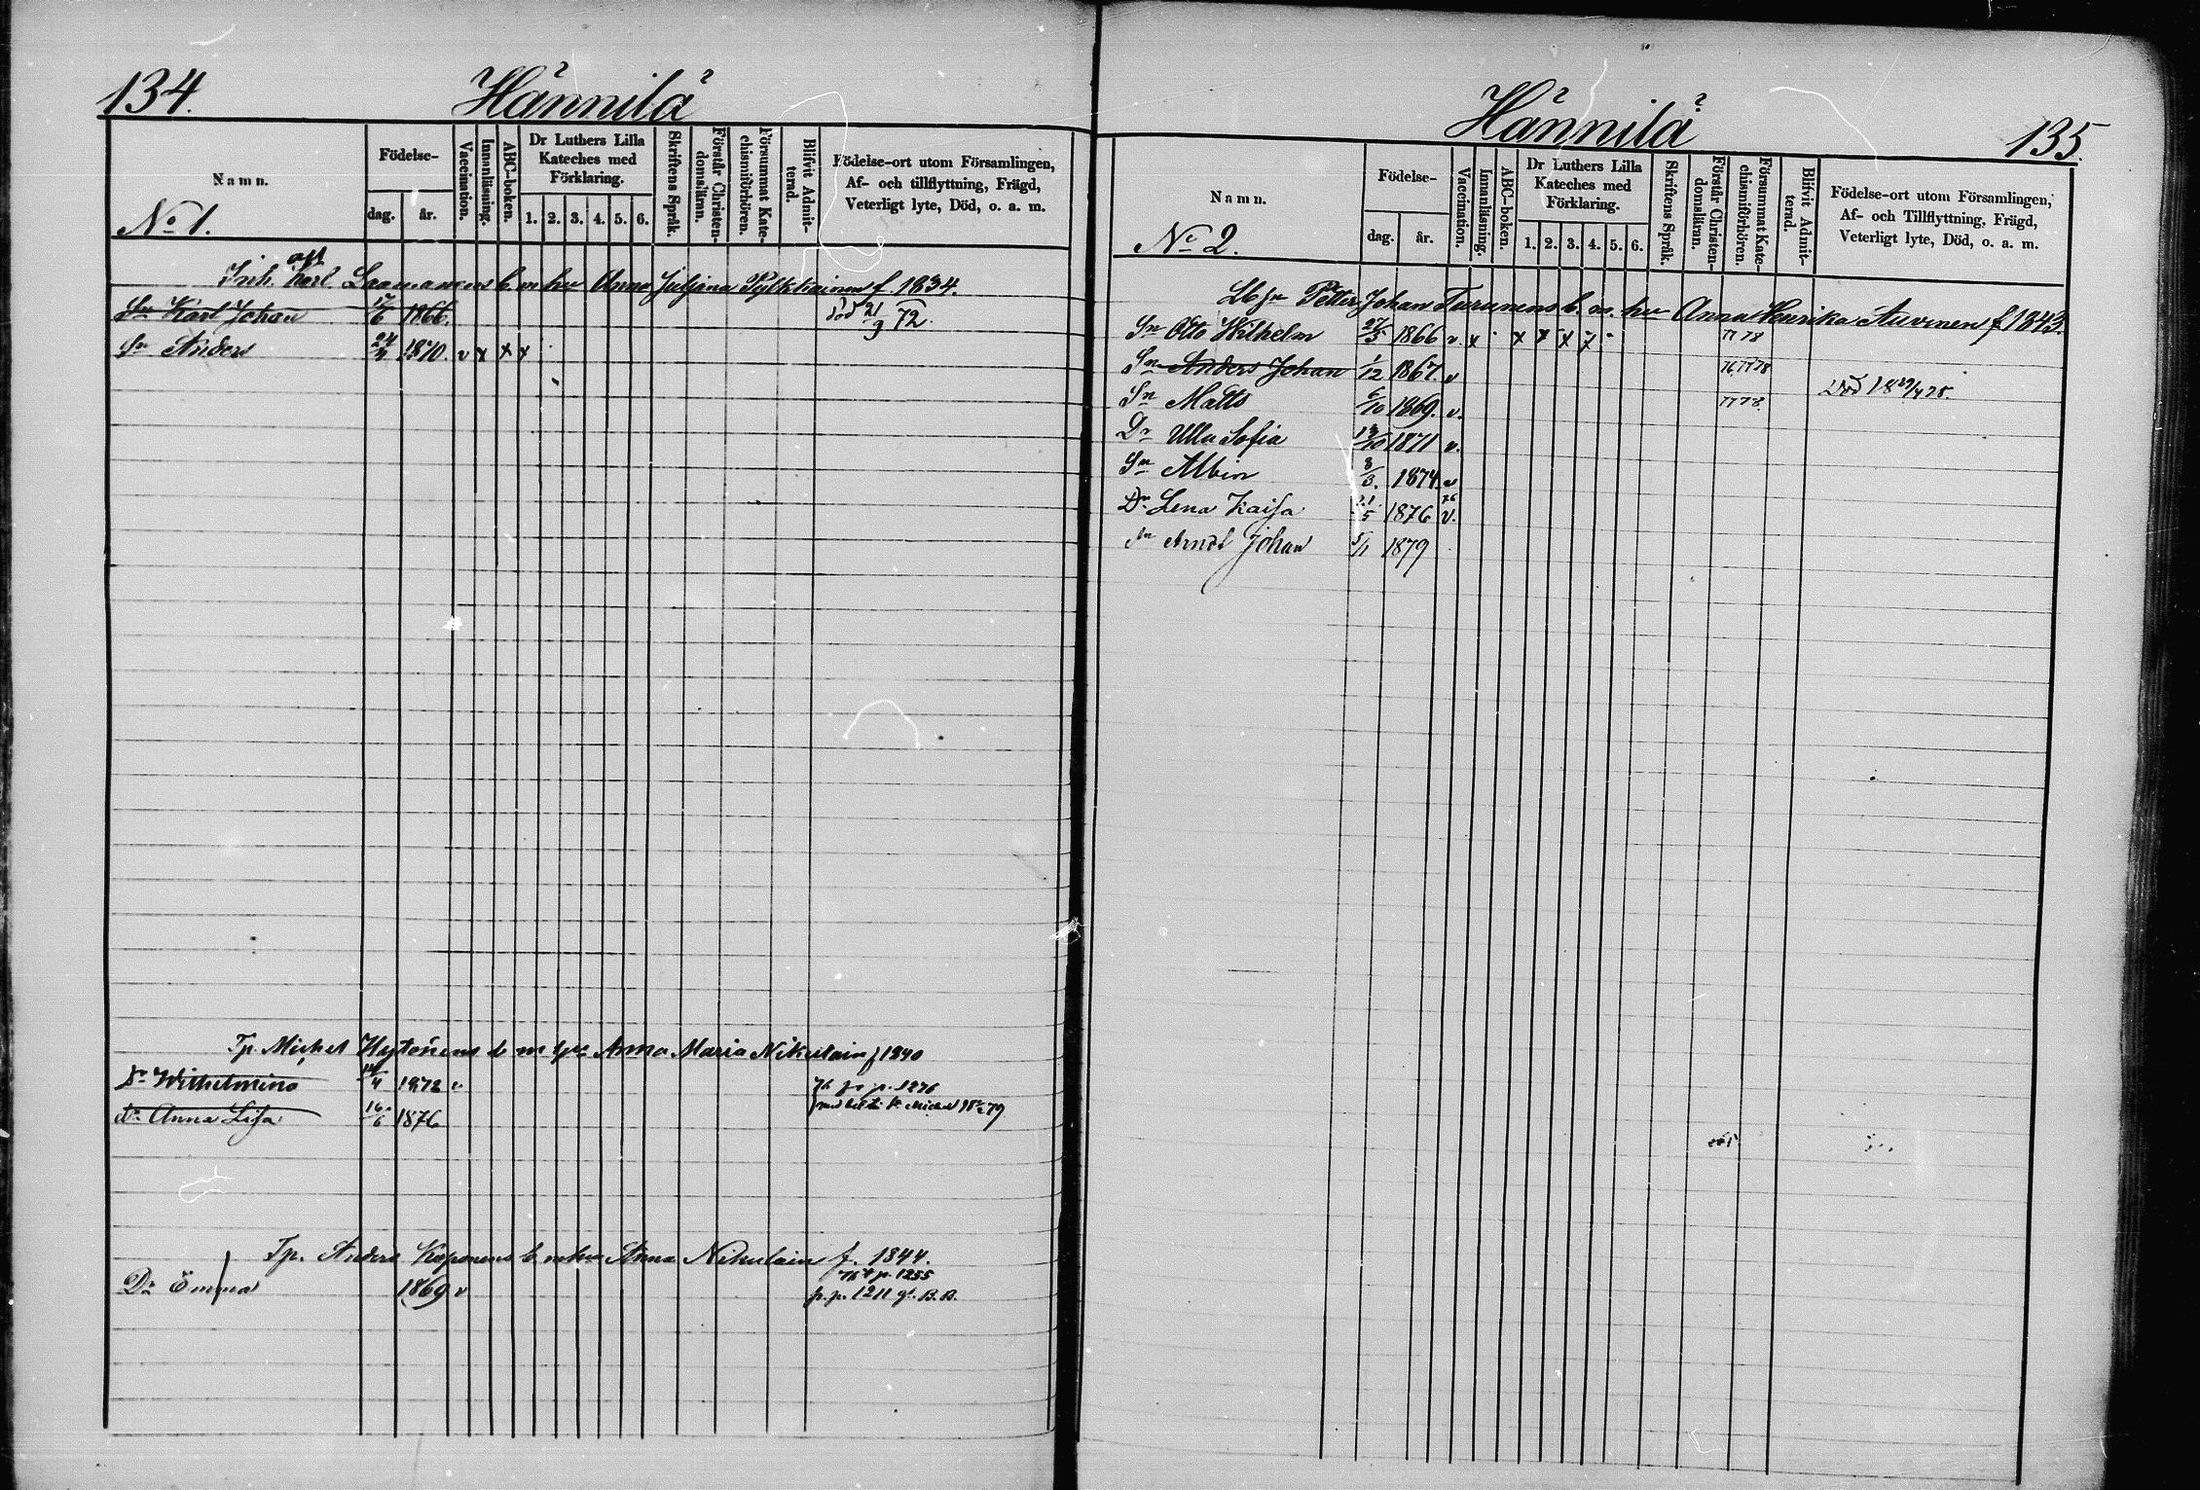 134.
Hännilä
Namn.
Födelse-
dag.
år.
Vaccination.
Innanläsning.
ABC-boken.
Dr Luthers Lilla
Kateches med
Förklaring.
1. 2. 3. 4. 5. 6.
Skriftens Språk.
Förstår Christen-
domsläran.
Försummat Kate-
chismiförhören.
Blifvit Admit-
terad.
Födelse-ort utom Församlingen,
Af- och tillflyttning, Frägd,
Veterligt lyte, Död, o. a. m.
No 1.
Inh. Karl Laamanens b. m. hu Anna Juljana Pylkkäinen f. 1834.
Sn Karl Johan 17/6 1866. död 21/9 72.
Sn Anders 1870. v x x x
Tp. Michel b m Anna Maria Nikulain f 1840
Dr Wilhelmina 1872 v 76 p. 1276
Dr Anna Lisa 16/6 1876
Tp. Anders Koponens b. m hu Anna Nikulain f. 1844.
76 p. 1255
Dr Emma 1869 v p. p. 1211
Hännilä
135.
Namn.
Födelse-
dag.
år.
Vaccination.
Innanläsning.
ABC-boken.
Dr Luthers Lilla
Kateches med
Förklaring.
1. 2. 3. 4. 5. 6.
Skriftens Språk.
Förstår Christen-
domsläran.
Försummat Kate-
chismiförhören.
Blifvit Admit-
terad.
Födelse-ort utom Församlingen,
Af- och Tillflyttning, Frägd,
Veterligt lyte, Död, o. a. m.
No 2.
Petter Johan Turunens b. m. hu Anna Henrika Auvinen f 1843.
Sn Otto Wilhelm 27/5 1866 v. x x x x 77 78
Sn Anders Johan 1/12 1867. v 76, 77 78
Sn Matts 6/10 1869. v. 77 78. Död
Dr Ulla Sofia 13/10 1871 v.
Sn Albin 8/3. 1874. v
Dr Lena Kaisa 1876 v. 76
Sn Johan 5/1 1879